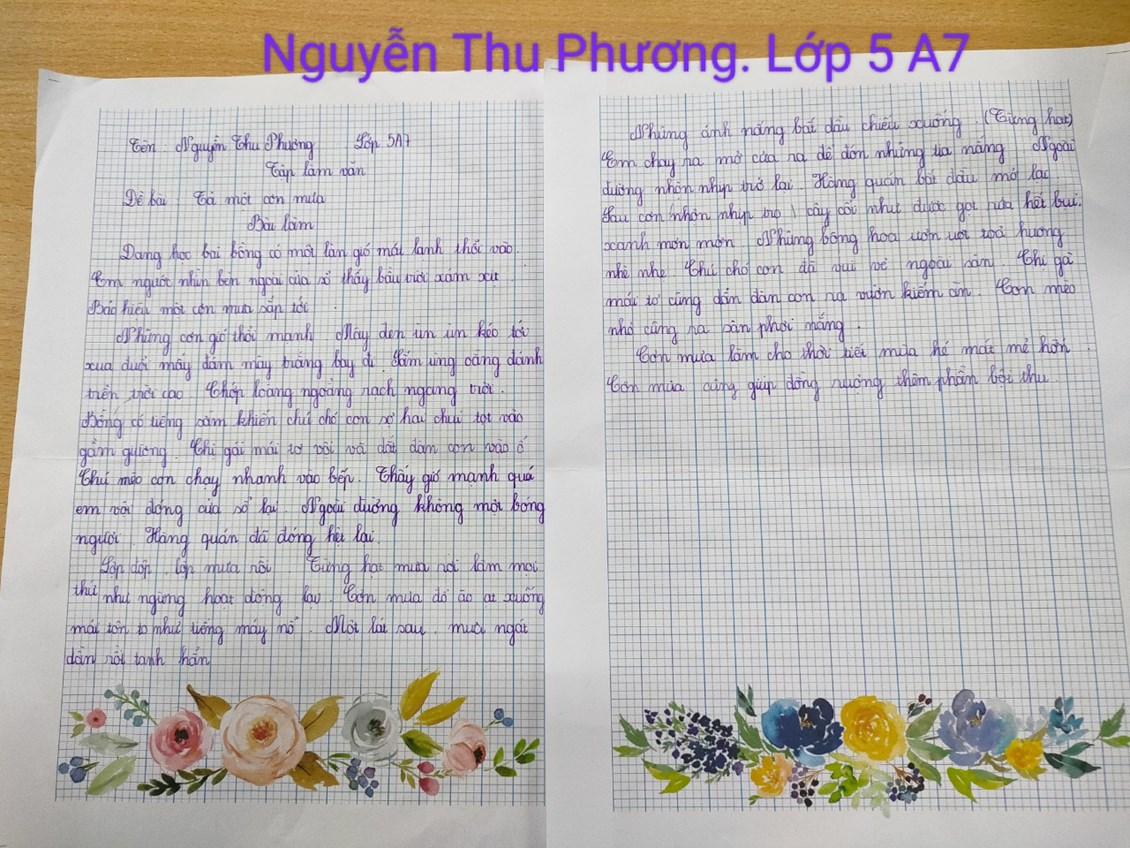 Nguyễn Thu Phương. Lớp 5 A7
Tên Nguyễn Thu Phương Lớp 5A7
Tập làm văn
Đề bài : Tả một cơn mưa
Bài làm
Đang học bài bỗng có một làn gió mát lạnh thổi vào.
Em người nhìn bên ngoài cửa sổ thấy bầu trời xám xịt.
Báo hiệu một cơn mưa sắp tới.
Những cơn gió thổi mạnh. Mây đen ùn ùn kéo tới
xua đuổi mấy đám mây trắng bay đi. Sấm ùng oàng đánh
trên trời cao. Chớp loằng ngoằng rạch ngang trời.
Bỗng có tiếng sấm khiến chú chó con sợ hai chui tọt vào
gầm giường. Chị gái mái tơ vội vã dắt đàn con vào ổ
Chú mèo con chạy nhanh vào bếp. Thấy gió mạnh quá
em vội đóng cửa sổ lại. Ngoài đường không một bóng
người. Hàng quán đã đóng hết lại.
Lộp độp, lộp mưa rồi. Từng hạt mưa rơi làm mọi
thứ như ngừng hoạt động lau. Cơn mưa đổ ào ạt xuống
mái tôn to như tiếng máy nổ. Một lát sau, mưa ngát
dần rồi tạnh hẳn
Những ánh nắng bắt đầu chiếu xuống. (Từng hạt)
Em chạy ra mở cửa ra để đón những tia nắng. Ngoài
đường nhộn nhịp trở lại. Hàng quán bắt đầu mở lại
Sau cơn nhộn nhịp trọ, cây cối như được gọt rửa hết bụi.
xanh mơn mởn. Những bông hoa ươn ướt toả hương
nhè nhẹ. Chú chó con đã vui vẻ ngoài sân. Chị gà
mái tơ cũng dẫn đàn con ra vườn kiếm ăn. Con mèo
nhỏ cũng ra sân phơi nắng.
Cơn mưa làm cho thời tiết mùa hè mát mẻ hơn.
Cơn mưa cũng giúp đồng ruộng thêm phần bội thu